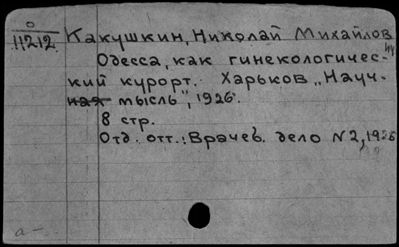 0
11212
Какушкин, Николай Михайлов
Одесса, как гинекологичес-
кий курорт. Харьков „Науч-
ная мысль", 1926.
8 стр.
Отд. отт.: Врачеб. дело N2, 1926
а—